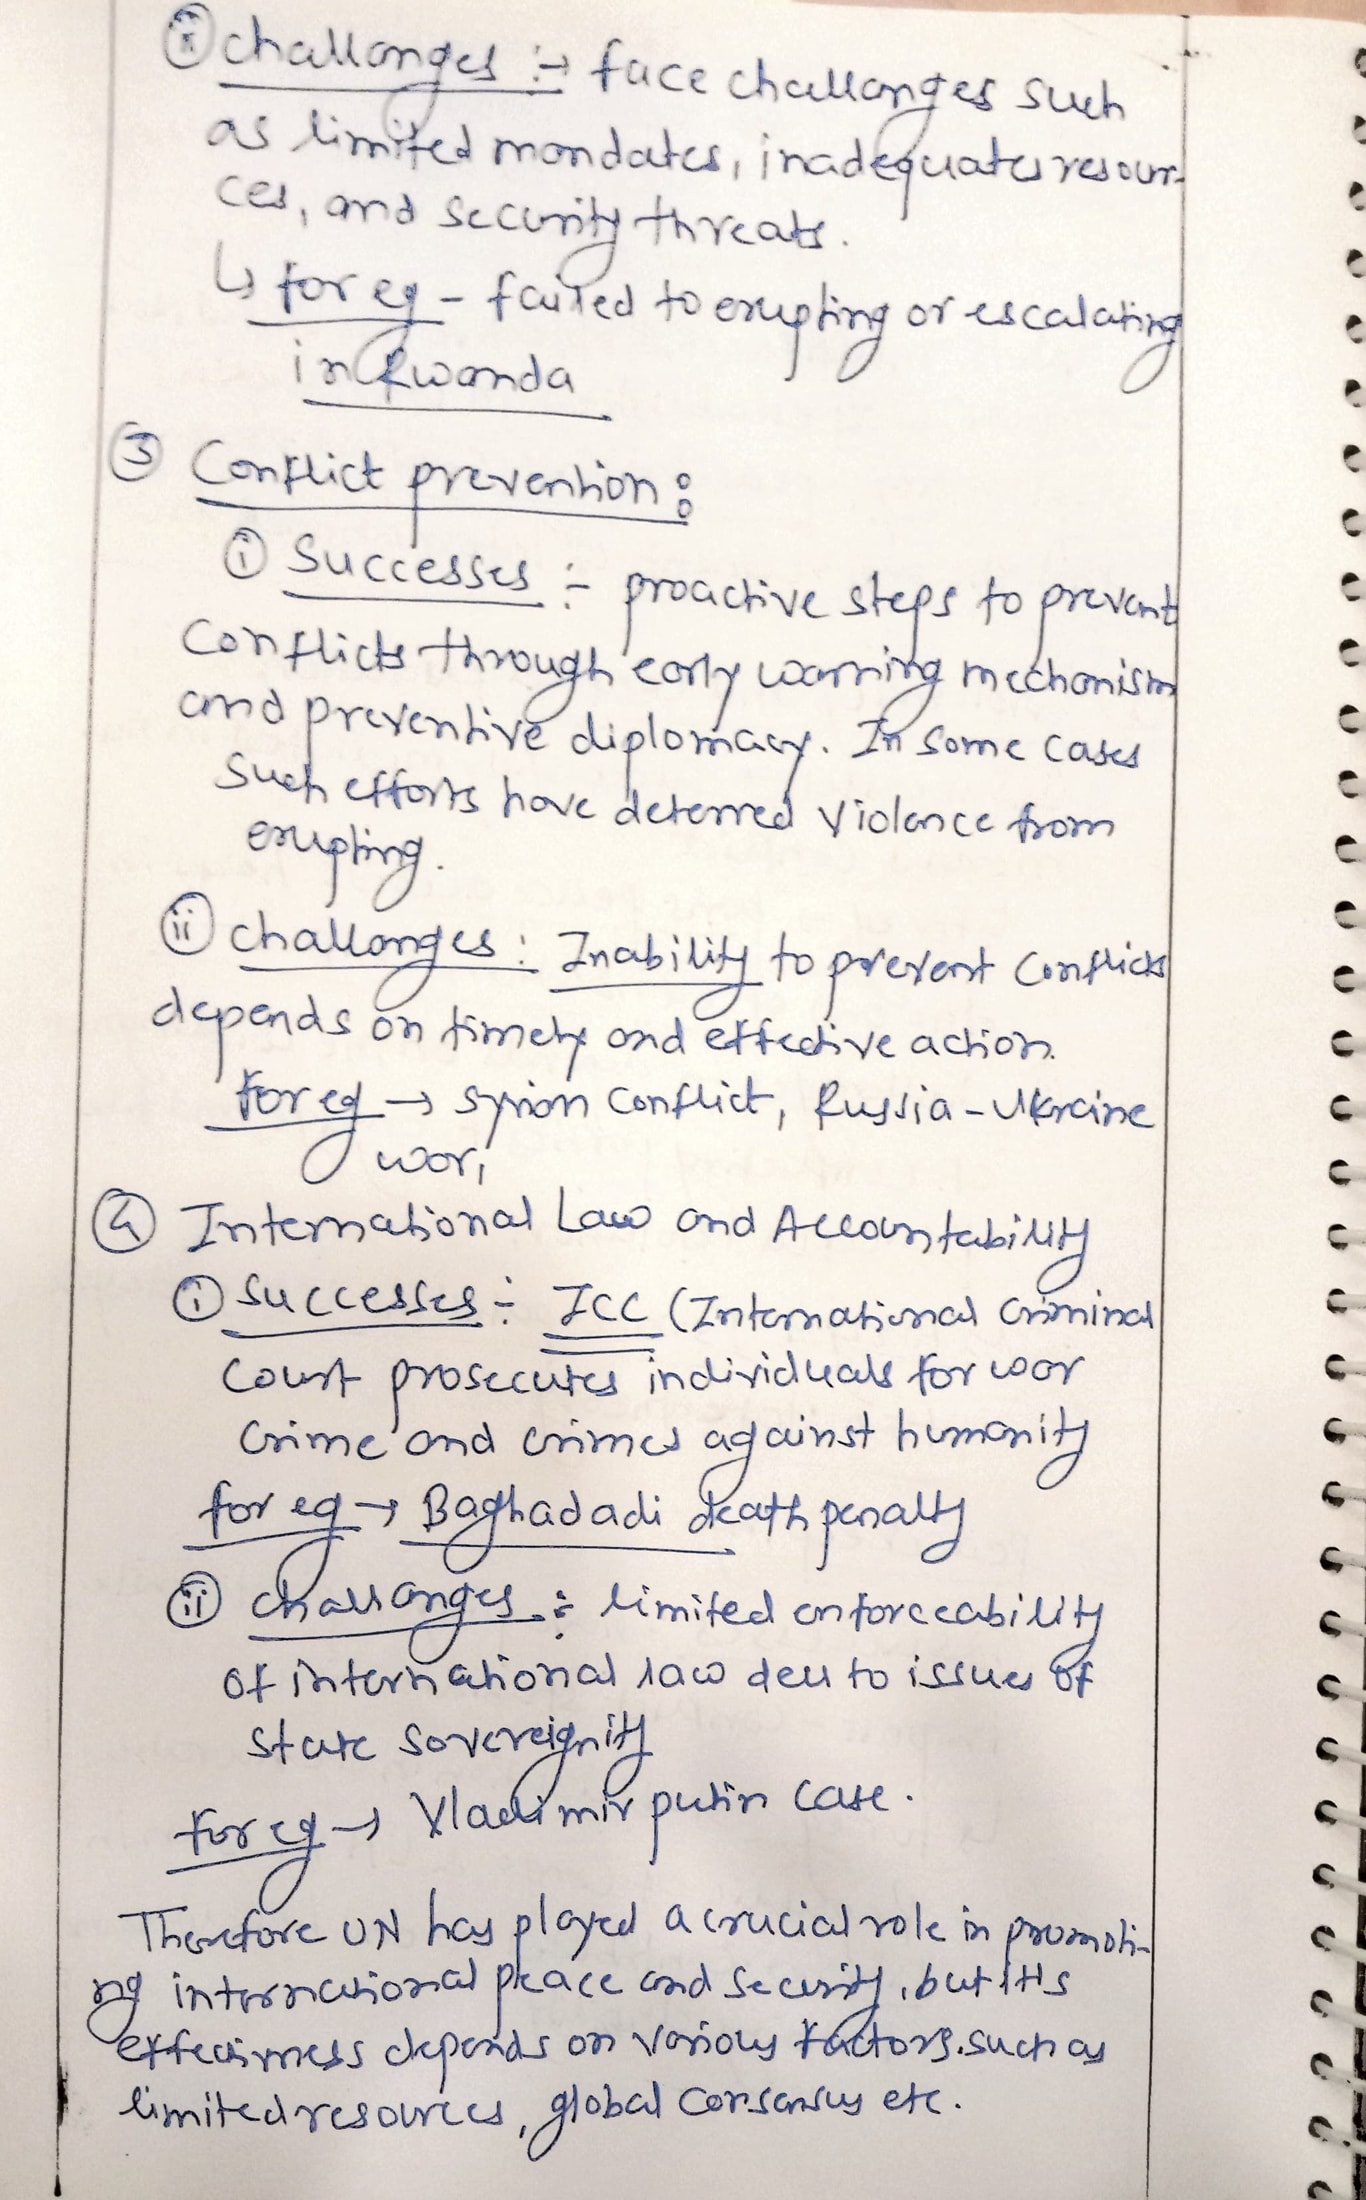 ⓘⓘ challanges :→ face challanges such
as limited mandates, inadequates resour-
ces, and security threats.
↳ for eg - failed to erupting or escalating
in Rwanda
③ Conflict prevention:
ⓘ Successes :- proactive steps to prevent
conflicts through early warning mechanism
and preventive diplomacy. In some cases
such efforts have deterred violence from
erupting.
ⓘⓘ challanges : Inability to prevent conflicts
depends on timely and effective action.
for eg → syrian conflict, Russia-Ukraine
war,
④ International Law and Accountability
ⓘ successes :- ICC (International criminal
court prosecutes individuals for war
crime and crimes against humanity
for eg → Baghadadi death penalty
ⓘⓘ challanges :- limited enforceability
of international law deu to issues of
state sovereignity
for eg → Vladimir putin case.
Therefore UN has played a crucial role in promoti-
ng international peace and security, but its
effectivness depends on various factors. such as
limited resources, global consensus etc.